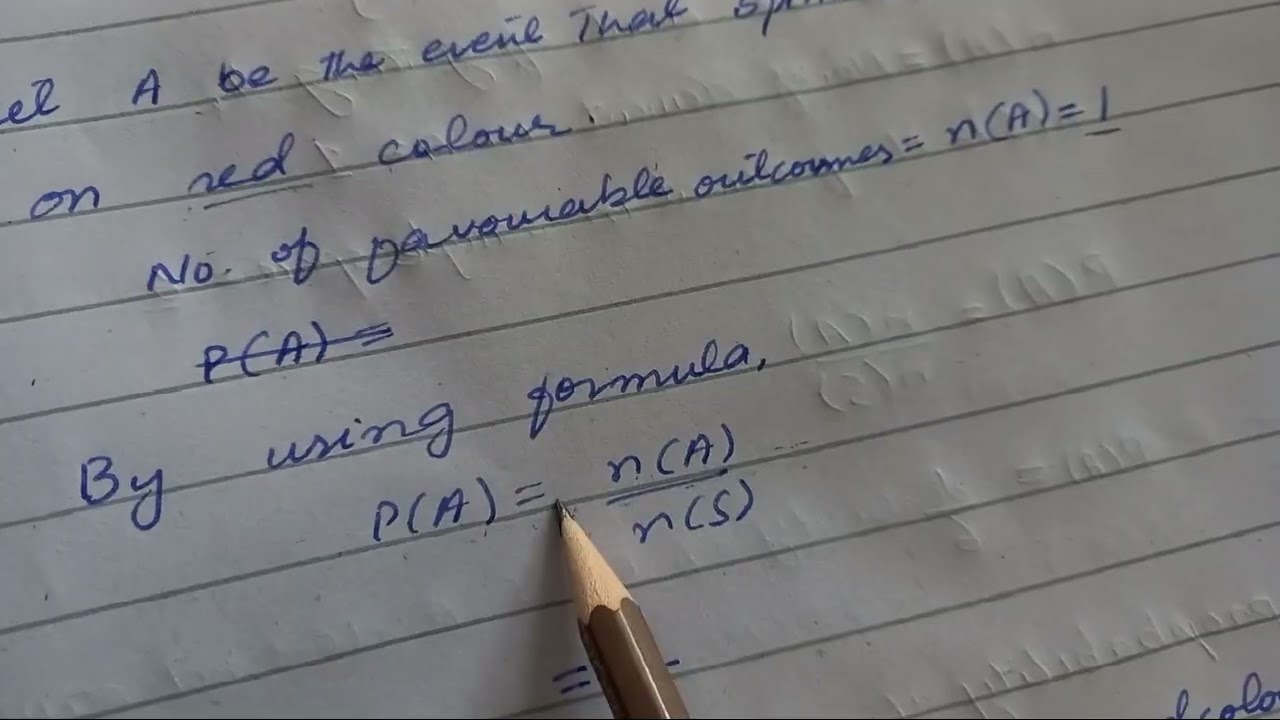 A be the event That
on red colour.
No. of favourable outcomes = n(A) = 1
P(A) =
By using formula,
P(A) = n(A)
n(S)
=